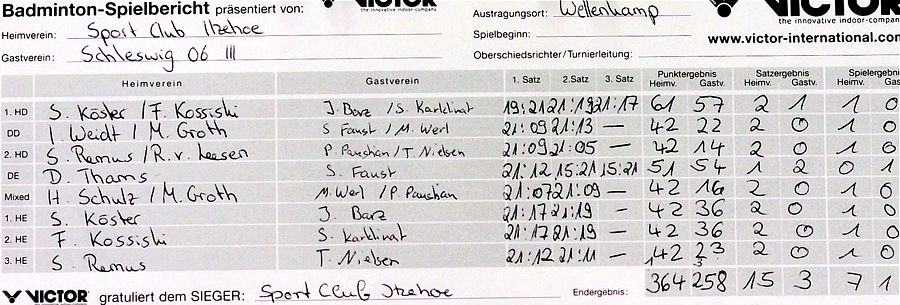 Badminton-Spielbericht präsentiert von: VICTOR the innovative indoor-company Austragungsort: Wellenkamp VICTOR the innovative indoor-company
Heimverein: Sport Club Itzehoe Spielbeginn: www.victor-international.com
Gastverein: Schleswig 06 III Oberschiedsrichter/Turnierleitung:
Heimverein Gastverein 1. Satz 2. Satz 3. Satz Punktergebnis Heimv. Gastv. Satzergebnis Heimv. Gastv. Spielergebnis Heimv. Gastv.
1. HD S. Köster / F. Kossiski J. Barz / S. Karklinat 19:21 21:19 21:17 61 57 2 1 1 0
DD I. Weidt / M. Groth S Faust / M. Werl 21:09 21:13 — 42 22 2 0 1 0
2. HD S. Remus / R. v. Leesen P. Paushan / T. Nielsen 21:09 21:05 — 42 14 2 0 1 0
DE D. Thams S. Faust 21:12 15:21 15:21 51 54 1 2 0 1
Mixed H. Schulz / M. Groth M. Werl / P. Paushan 21:07 21:09 — 42 16 2 0 1 0
1. HE S. Köster J. Barz 21:17 21:19 — 42 36 2 0 1 0
2. HE F. Kossiski S. Karklinat 21:17 21:19 — 42 36 2 0 1 0
3. HE S. Remus T. Nielsen 21:12 21:11 — 42 23 2 0 1 0
VICTOR gratuliert dem SIEGER: Sport Club Itzehoe Endergebnis: 364 258 15 3 7 1